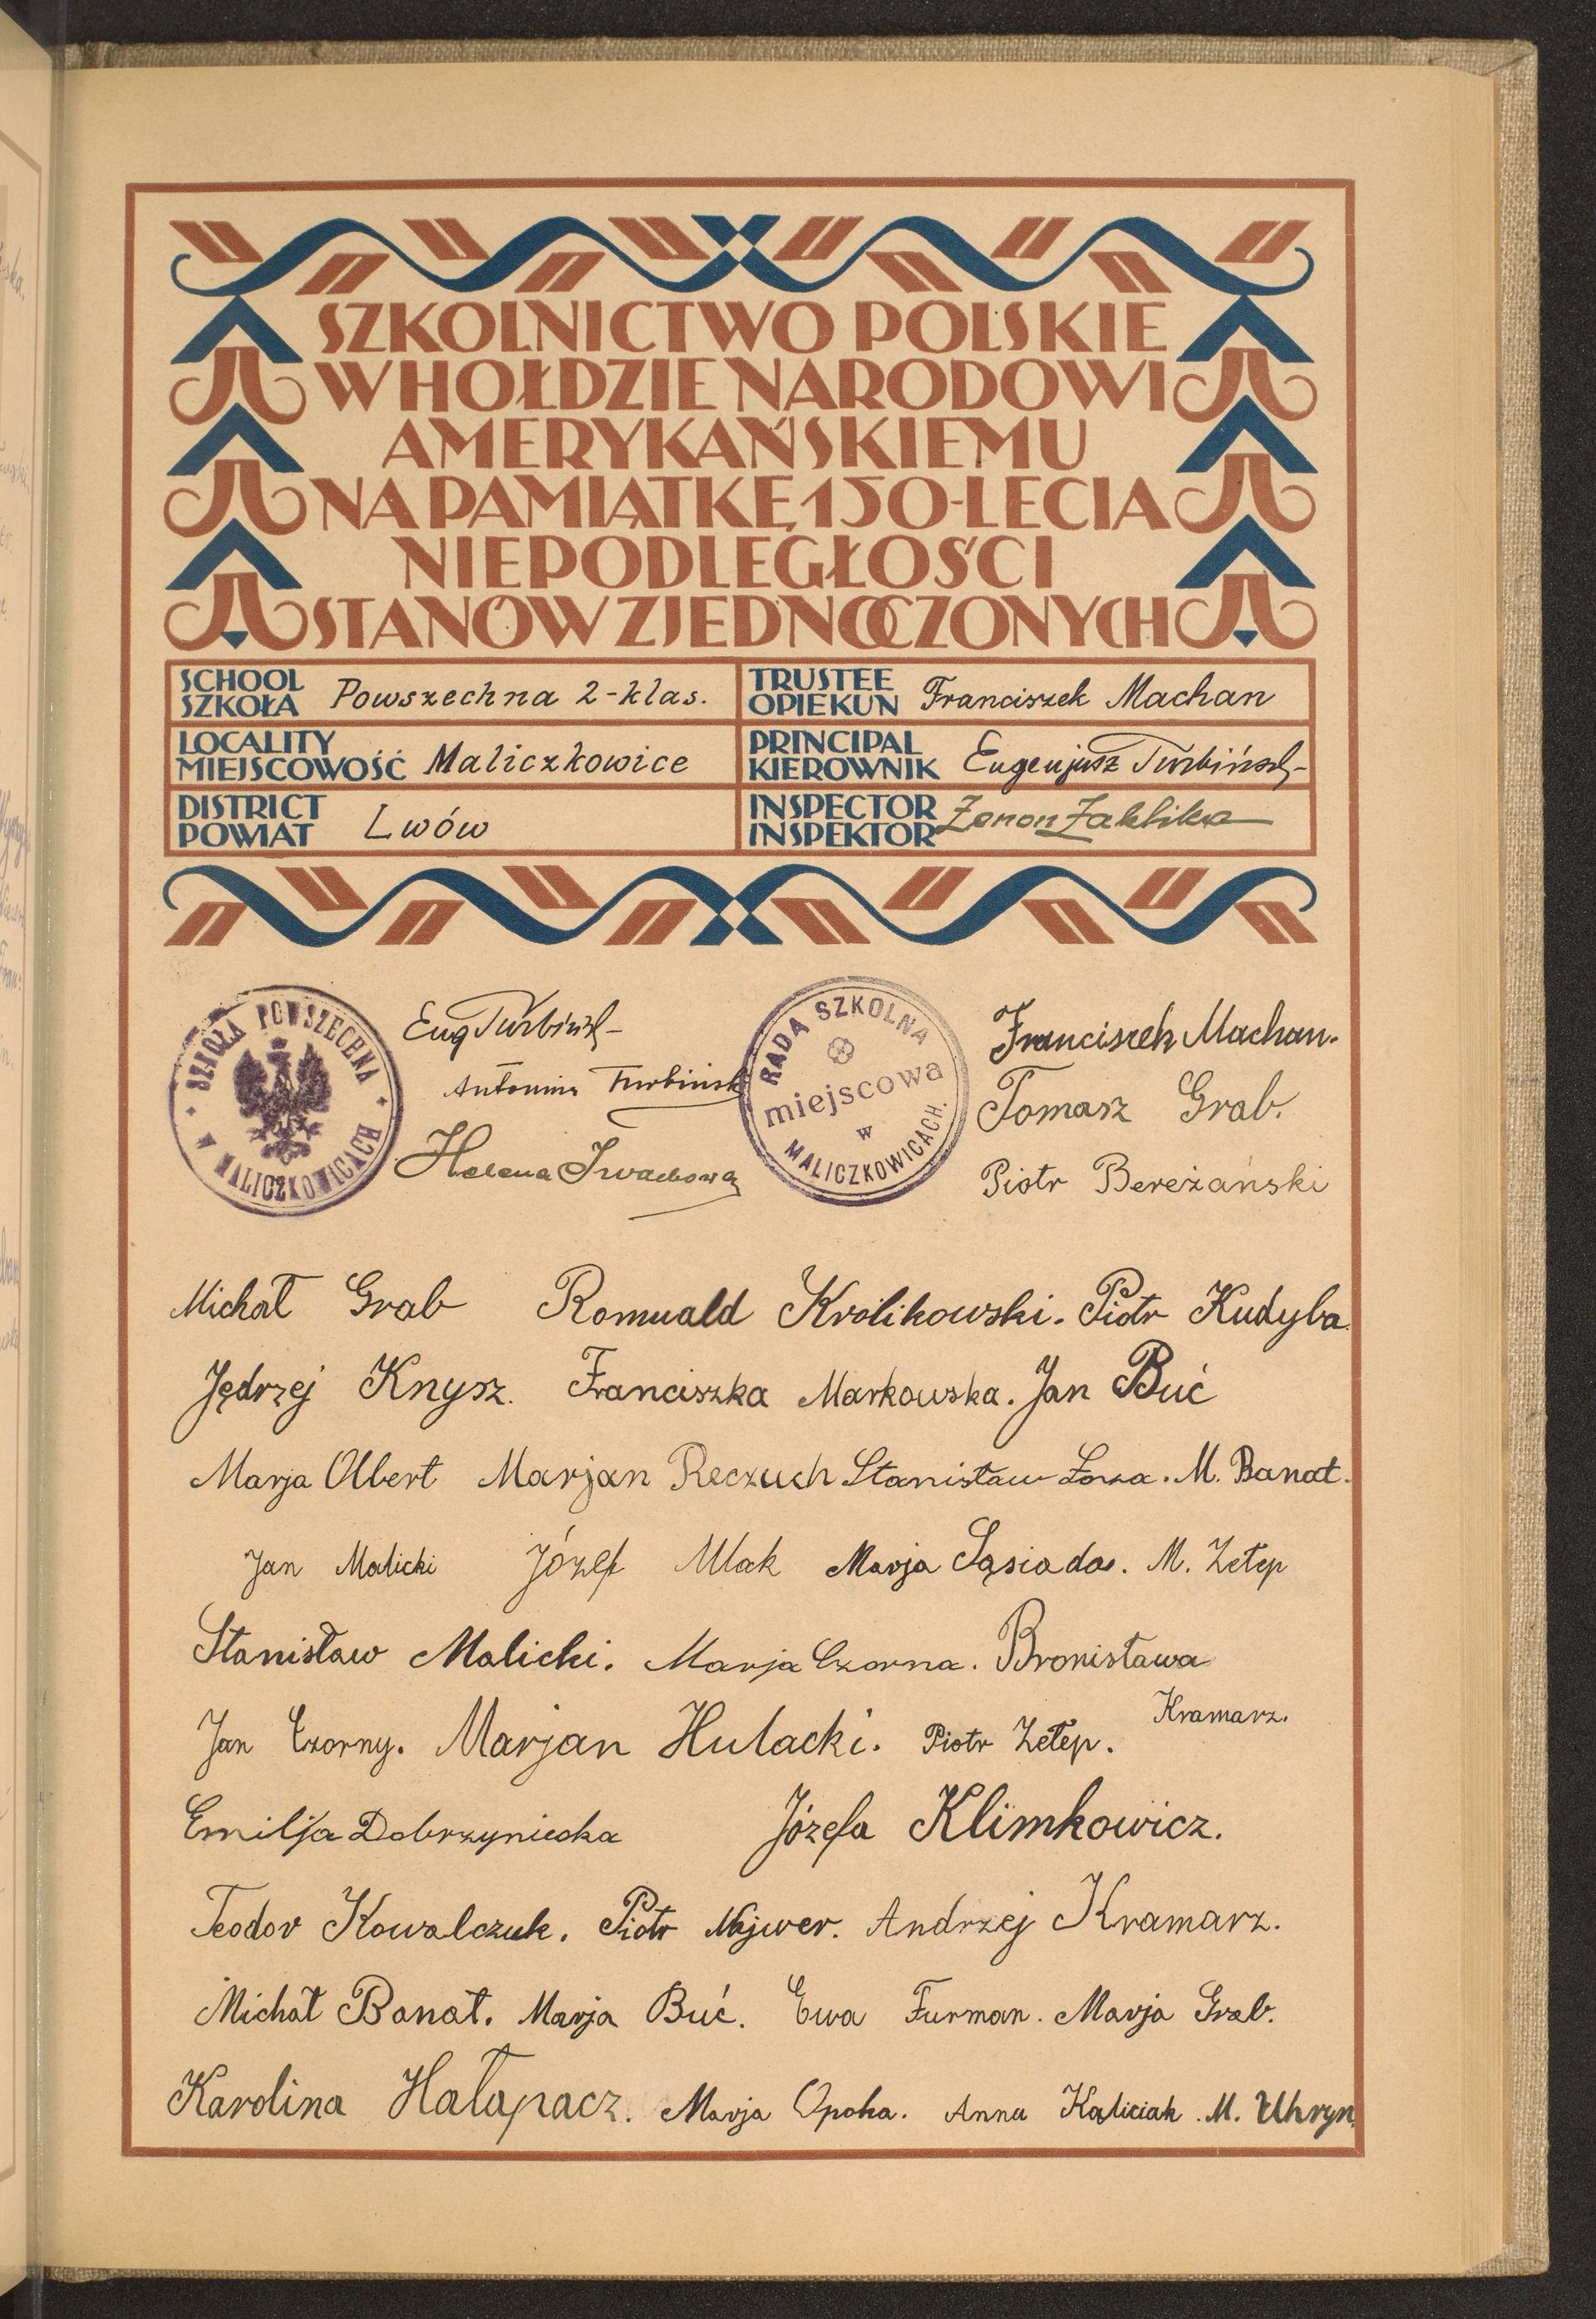 SZKOLNICTWO POLSKIE
W HOŁDZIE NARODOWI
AMERYKAŃSKIEMU
NA PAMIĄTKĘ 150-LECIA
NIEPODLEGŁOŚCI
STANÓW ZJEDNOCZONYCH
SCHOOL
SZKOŁA Powszechna 2-klas.
TRUSTEE
OPIEKUN Franciszek Machan
LOCALITY
MIEJSCOWOŚĆ Maliczkowice
PRINCIPAL
KIEROWNIK Eugenjusz Turbiński
DISTRICT
POWIAT Lwów
INSPECTOR
INSPEKTOR Zenon Zaklika
SZKOŁA POWSZECHNA
W MALICZKOWICACH
Eug Turbiński
Antonina Turbińska
Helena
RADA SZKOLNA
miejscowa
w
MALICZKOWICACH.
Franciszek Machan.
Tomasz Grab.
Piotr Bereżański
Michał Grab Romuald Królikowski. Piotr Kudyba.
Jędrzej Knysz. Franciszka Markowska. Jan Buć
Marja Olbert Marjan Reczuch Stanisław Łoza. M. Banat.
Jan Malicki Józef Ulak Marja Sąsiada. M. Zełep
Stanisław Malicki. Marja Czorna. Bronisława
Kramarz.
Jan Czorny. Marjan Hulacki. Piotr Zełep.
Emilja Dobrzyniecka Józefa Klimkowicz.
Teodor Kowalczuk. Piotr Majwer. Andrzej Kramarz.
Michał Banat. Marja Buć. Ewa Furman. Marja Grab.
Karolina Hałapacz. Marja Opoka. Anna Kaliciak. M. Uhryn.